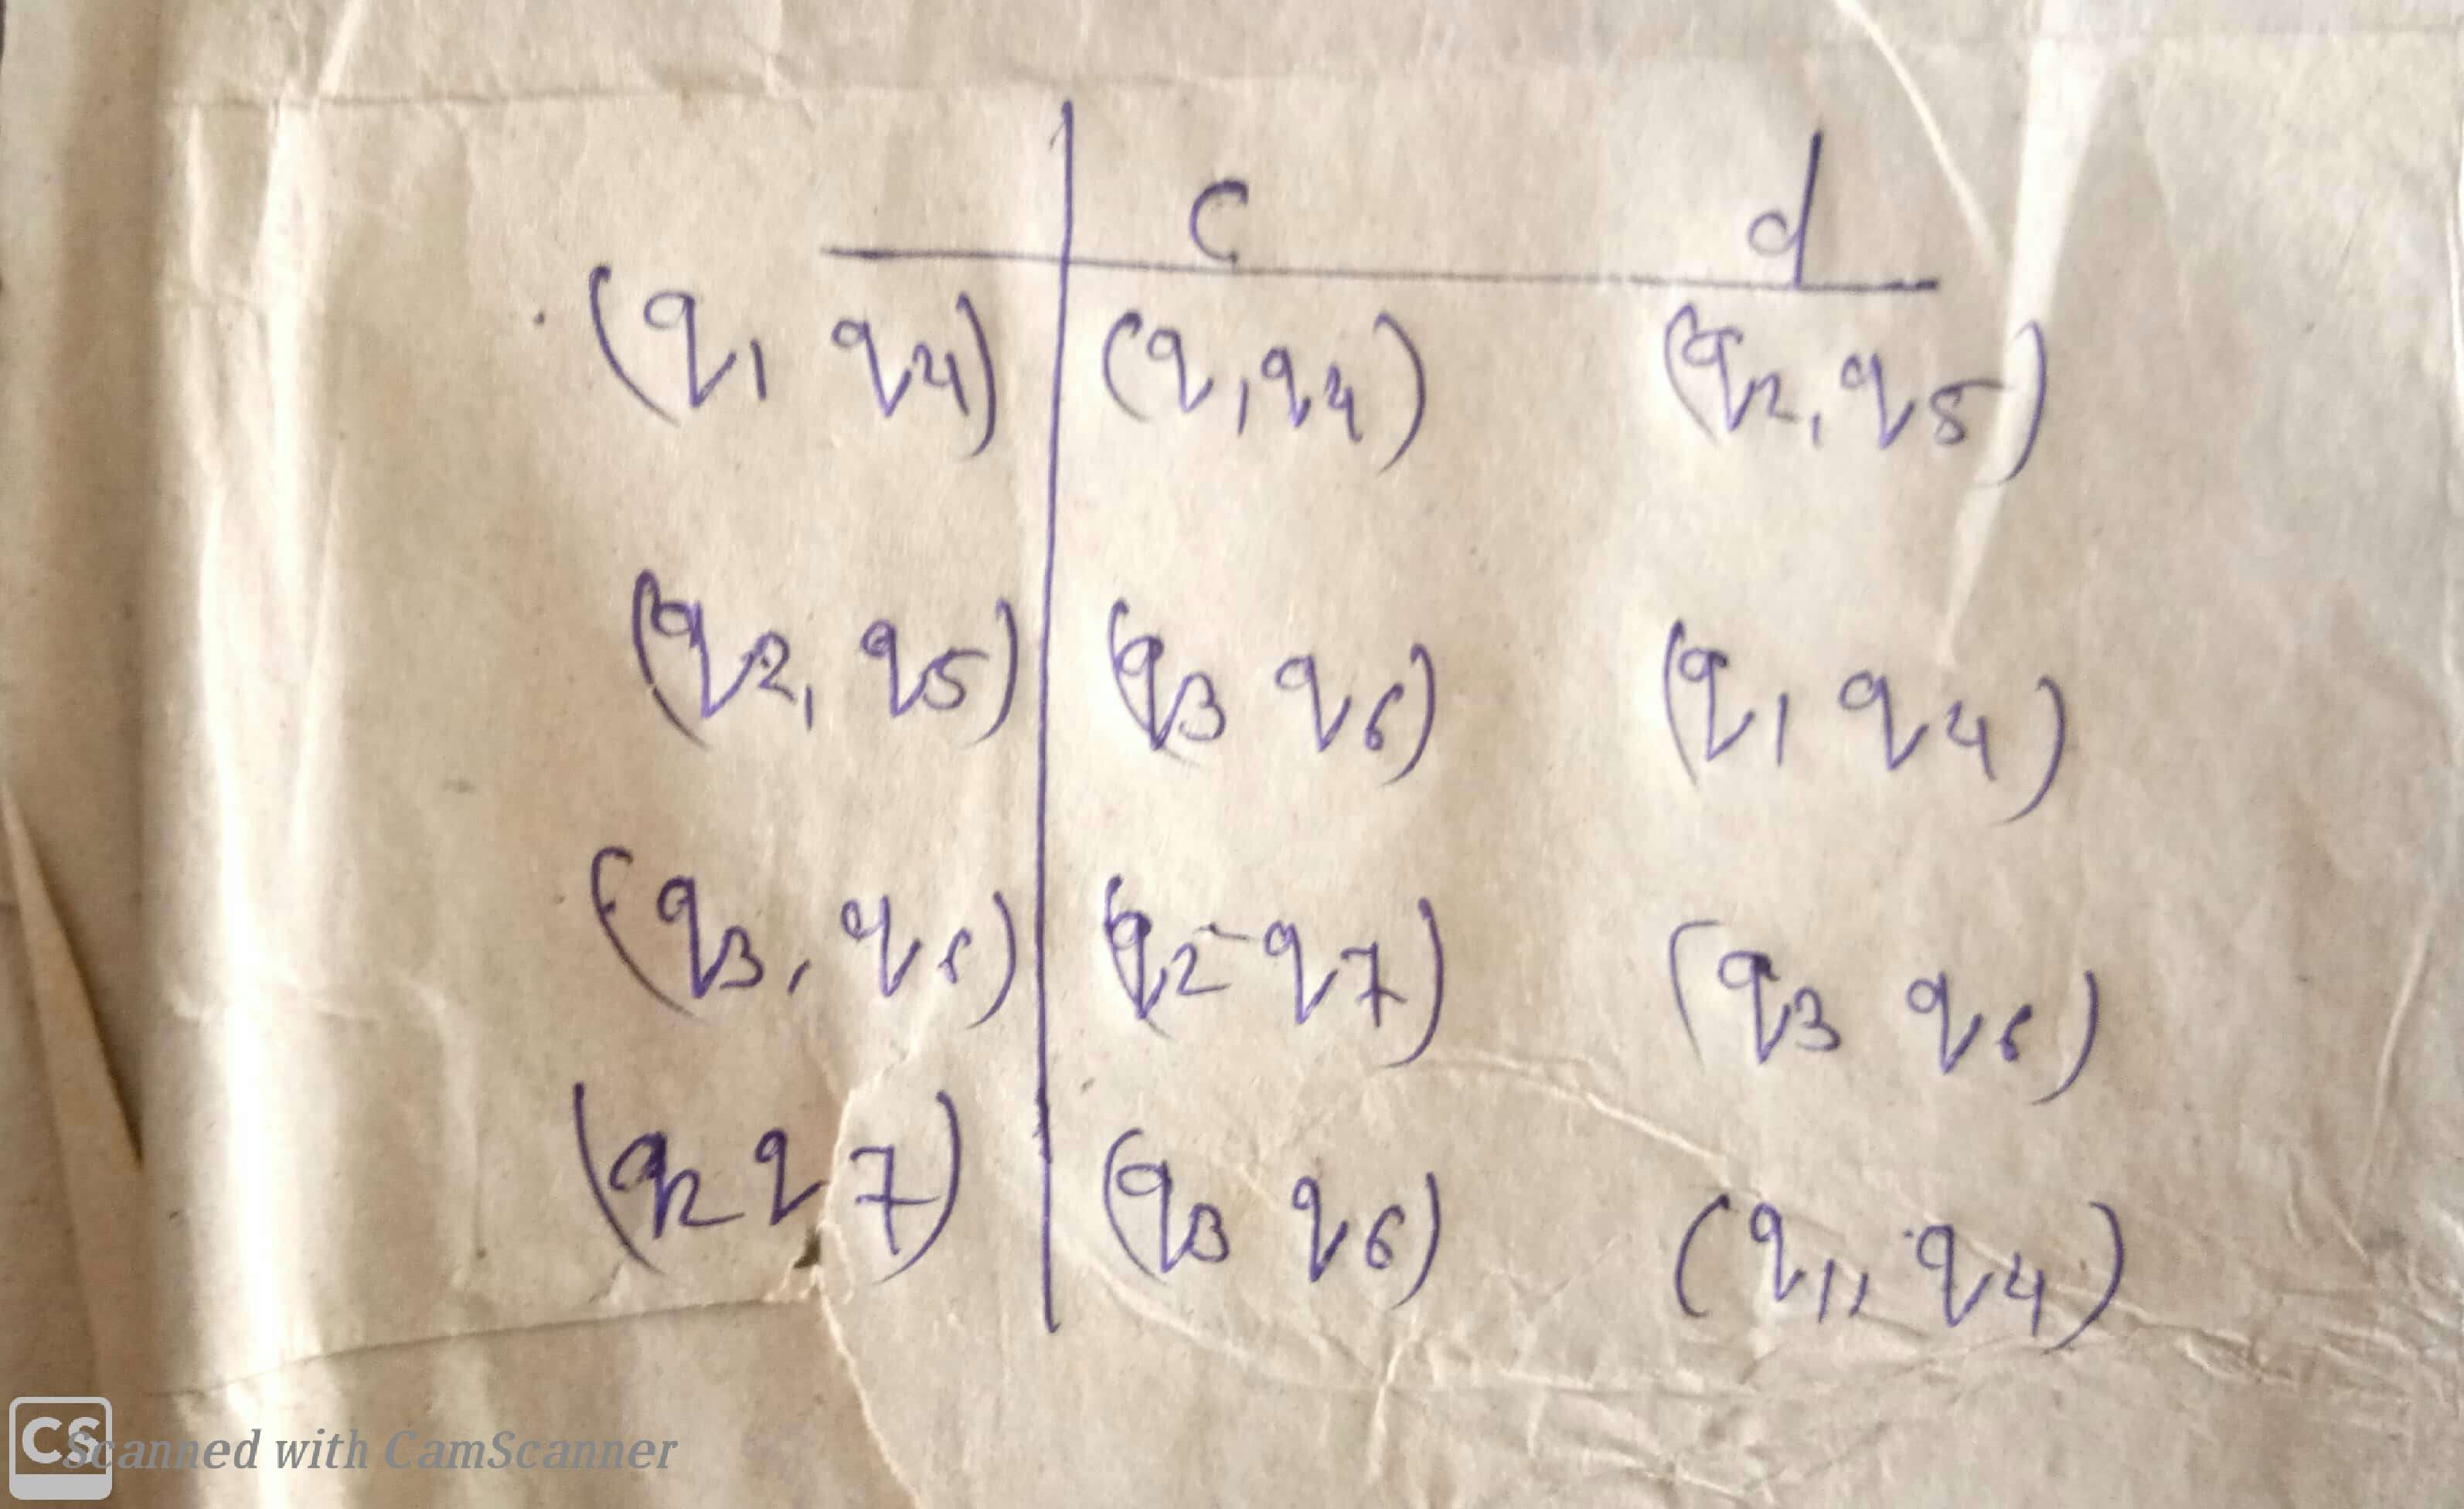 c d
(q1 q4) (q1, q4) (q2, q5)
(q2, q5) (q3 q6) (q1 q4)
(q3, q6) (q2 q7) (q3 q6)
(q2 q7) (q3 q6) (q1, q4)
CS Scanned with CamScanner